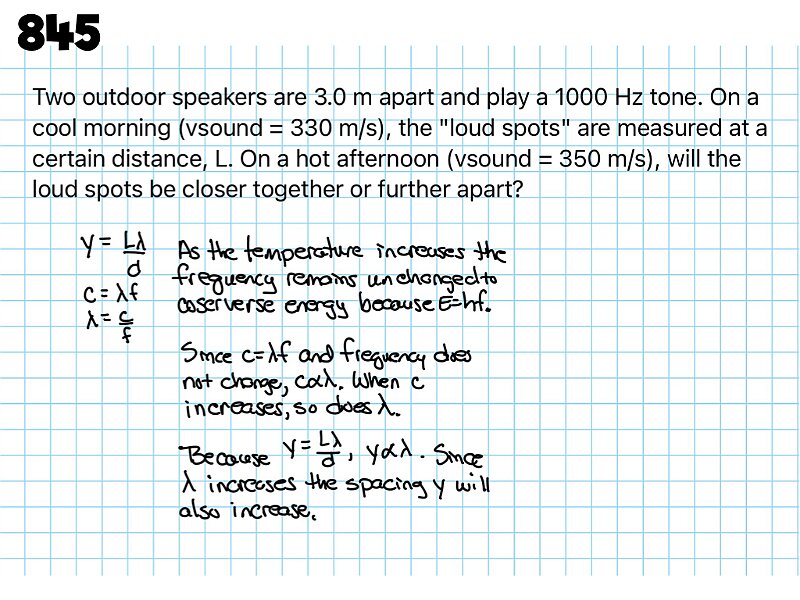 845
Two outdoor speakers are 3.0 m apart and play a 1000 Hz tone. On a
cool morning (vsound = 330 m/s), the "loud spots" are measured at a
certain distance, L. On a hot afternoon (vsound = 350 m/s), will the
loud spots be closer together or further apart?
y = Lλ/d
c = λf
λ = c/f
As the temperature increases the
frequency remains unchanged to
coserverse energy because E=hf.
Since c=λf and frequency does
not change, c∝λ. When c
increases, so does λ.
Because y = Lλ/d, y∝λ. Since
λ increases the spacing y will
also increase.